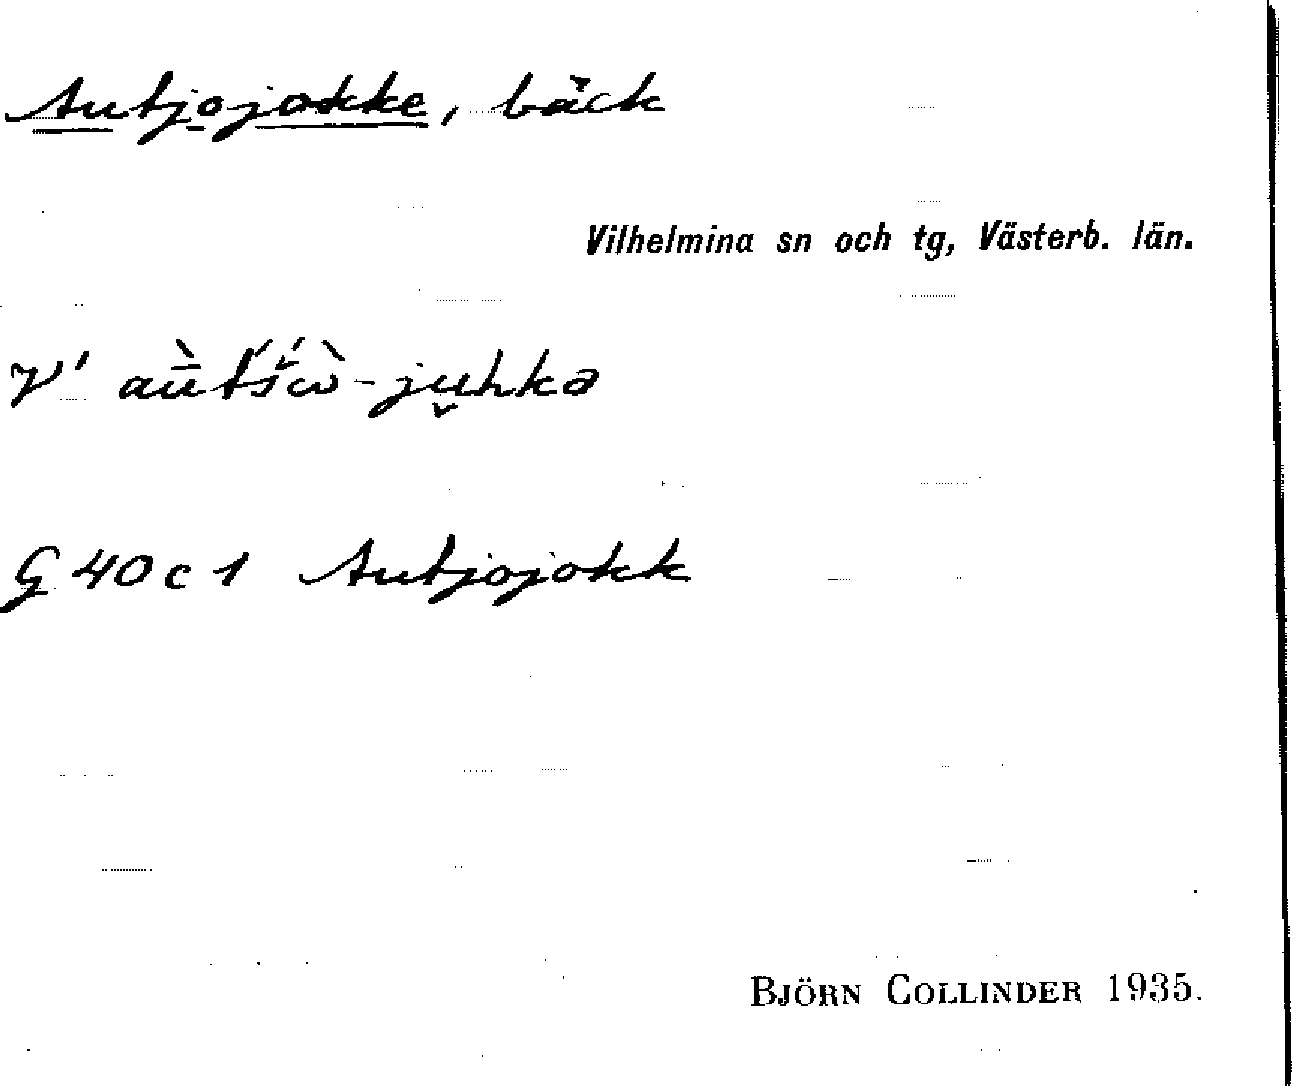 Autjojokke, bäck
Vilhelmina sn och tg, Västerb. län.
V' aù̄t́śὼ-juhka
G 40 c 1 Autjojokk
BJÖRN COLLINDER 1935.